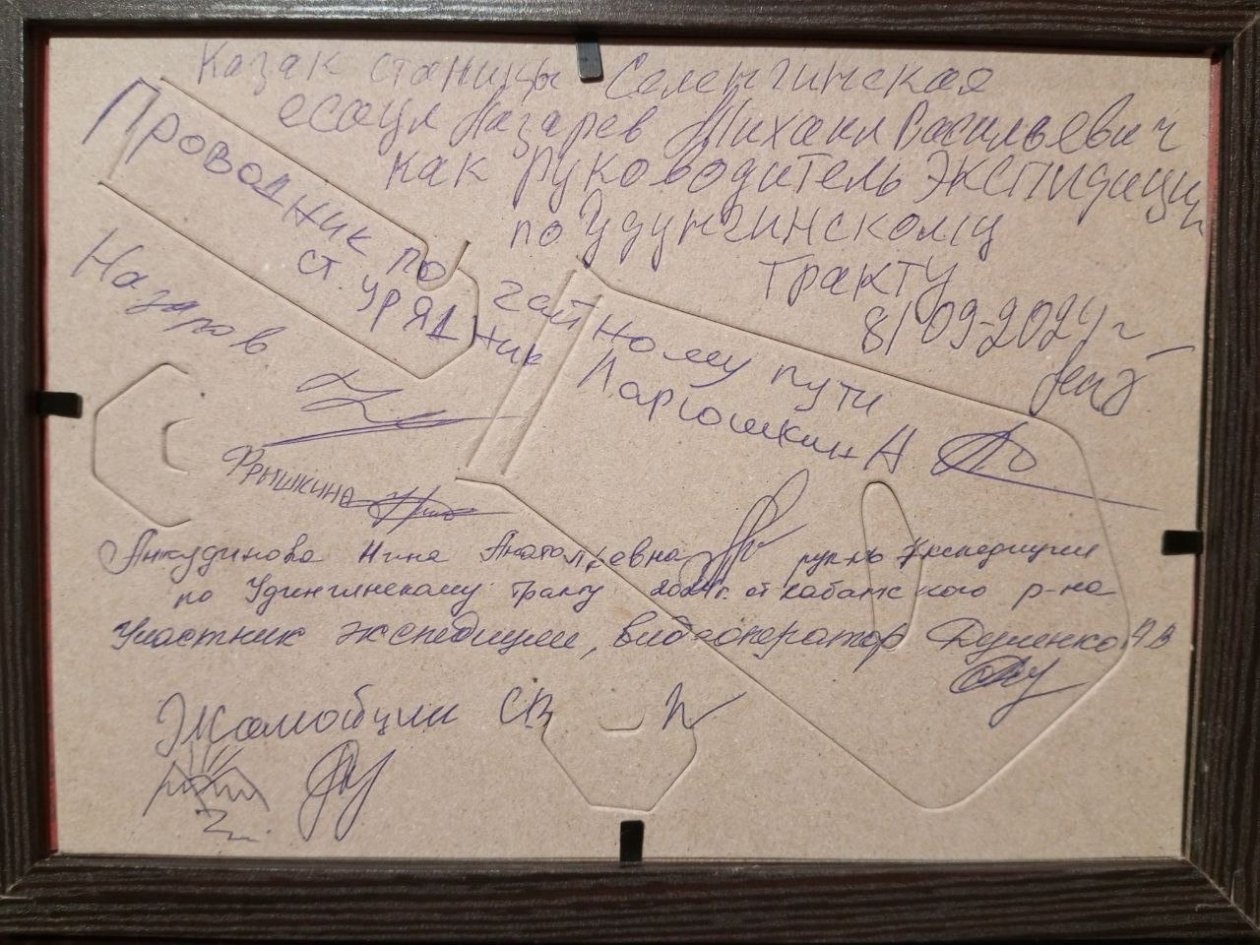 Казак станицы Селенгинская
есаул Назарев Михаил Васильевич
как руководитель Экспидиции
по Удунгинскому
тракту
8/09-2024 г
Проводник по чайному пути
ст. урядник Ларюшкин А
Назаров
Фрышкина
Анкудинова Нина Анатольевна рук-ль Экспедиции
по Удунгинскому тракту 2024 г. от Кабанского р-на
Участник экспедиции, видеооператор Дуленко А В